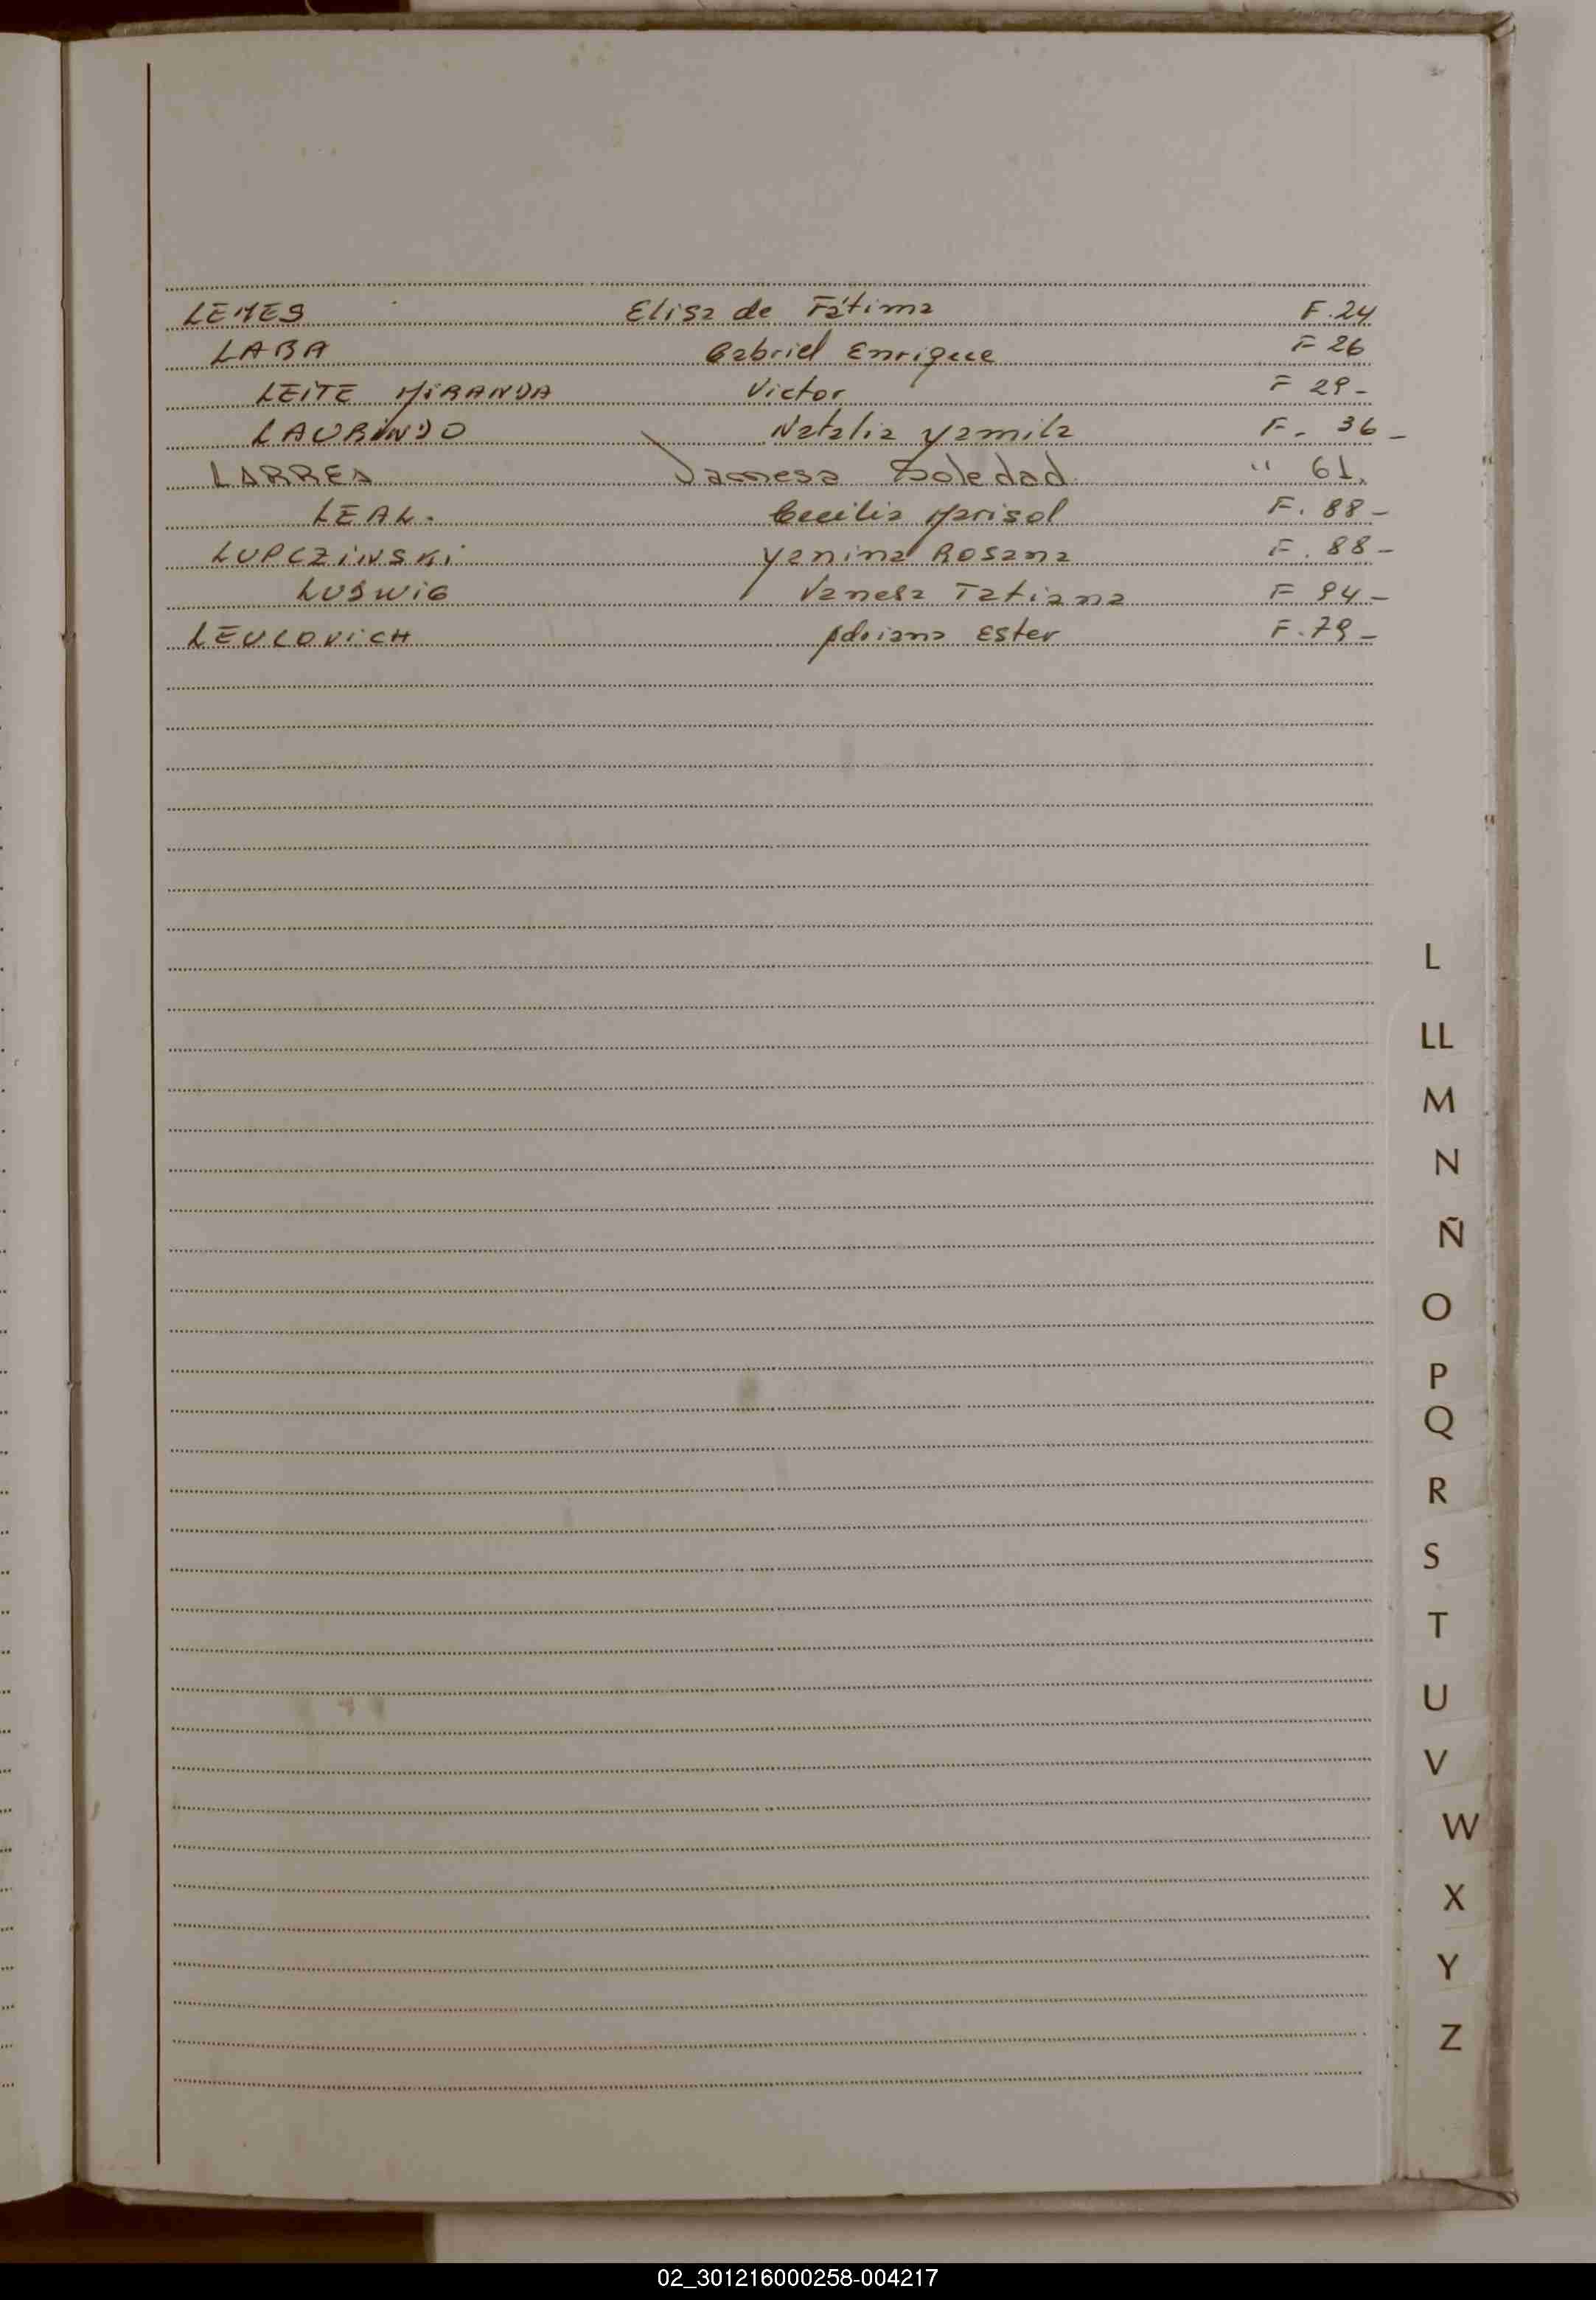 LEMES Elisa de Fátima F. 24
LABA Gabriel Enrique F 26
LEITE MIRANDA Victor F 29-
LAURINDO Natalia Yamila F. 36-
LARREA Vanesa Soledad " 61.
LEAL. Cecilia Marisol F. 88-
LUPCZINSKI Yanina Rosana F. 88-
LUDWIG Vanesa Tatiana F 94-
LEULOVICH Adriana Ester F. 79-
L
LL
M
N
Ñ
O
P
Q
R
S
T
U
V
W
X
Y
Z
02_301216000258-004217